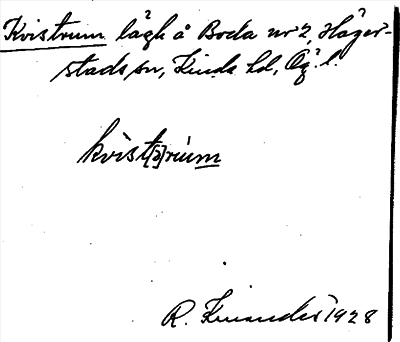 Kvistrum lägh å Boda nr 2, Häger-
stads sn, Kinda hd, Ög. l.
kvist[?]rum
R. Kinander 1928